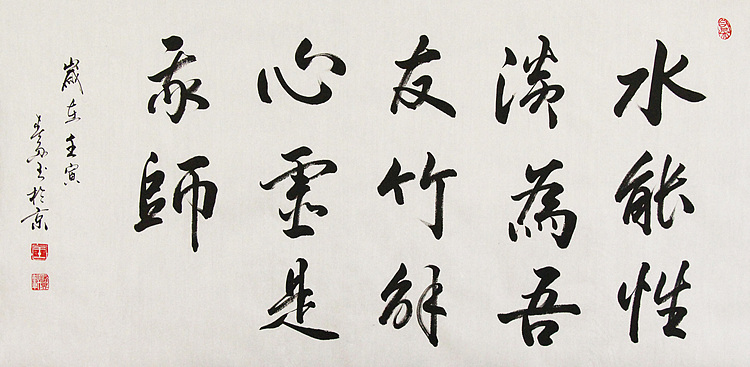 水能性
淡為吾
友竹解
心虛是
我師
歲在壬寅
王书於京